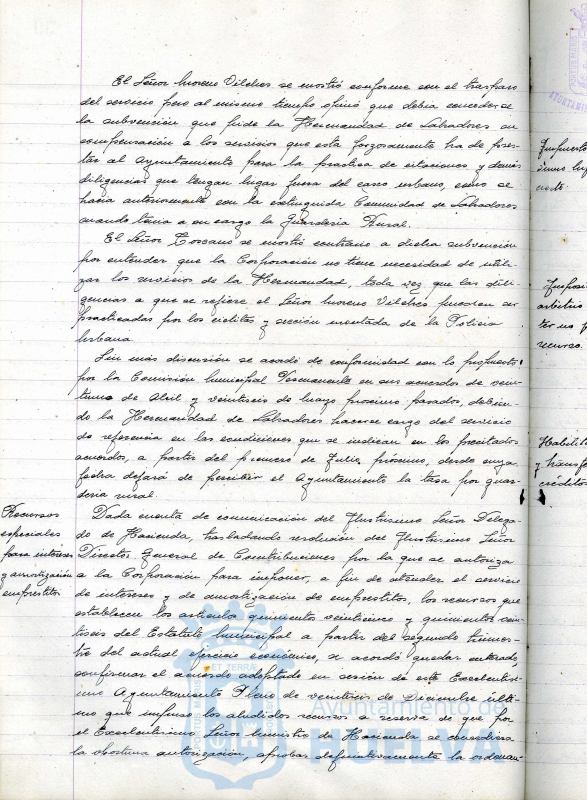 El Señor Moreno Vilches se mostró conforme con el traspaso
del servicio pero al mismo tiempo opinó que debia concederse
la subvención que pide la Hermandad de Labradores en
compensación a los servicios que esta forzosamente ha de pres-
tar al Ayuntamiento para la práctica de citaciones y demás
diligencias que tengan lugar fuera del casco urbano, como se
hacia anteriormente con la extinguida Comunidad de Labradores
cuando tenia a su cargo la Guarderia Rural.
El Señor Toscano se mostró contrario a dicha subvención
por entender que la Corporación no tiene necesidad de utili-
zar los servicios de la Hermandad, toda vez que las dili-
gencias a que se refiere el Señor Moreno Vilches pueden ser
practicadas por los ciclistas y sección montada de la Policia
Urbana.
Sin mas discusión se acordó de conformidad con lo propuesto
por la Comisión Municipal Permanente en sus acuerdos de vein-
tiuno de Abril y veintiseis de Mayo proximo pasados, debien-
do la Hermandad de Labradores hacerse cargo del servicio
de referencia en las condiciones que se indican en los precitados
acuerdos, a partir del primero de Julio próximo, desde cuya
fecha dejará de percibir el Ayuntamiento la tasa por guar-
deria rural.
Recursos
especiales
para intereses
y amortización
empréstitos
Dada cuenta de comunicación del Ilustrisimo Señor Delega-
do de Hacienda, trasladando resolución del Ilustrisimo Señor
Director General de Contribuciones por la que se autoriza
a la Corporación para imponer, a fin de atender el servicio
de intereses y de amortización de empréstitos, los recursos que
establecen los articulos quinientos veinticinco y quinientos vein-
tiseis del Estatuto Municipal a partir del segundo trimes-
tre del actual ejercicio económico, se acordó quedar enterado,
confirmar el acuerdo adoptado en sesión de este Excelentisi-
mo Ayuntamiento Pleno de de Diciembre últi-
mo que impuso los aludidos recursos a reserva de que por
el Excelentisimo Señor Ministro de Hacienda se concediera
la oportuna autorización, aprobar definitivamente la ordenan-
Ayuntamiento de
HUELVA
ET TERRA
Impuesto
Imposi
arbitrio
ter no f
recurso.
Habilita
y transf
créditos